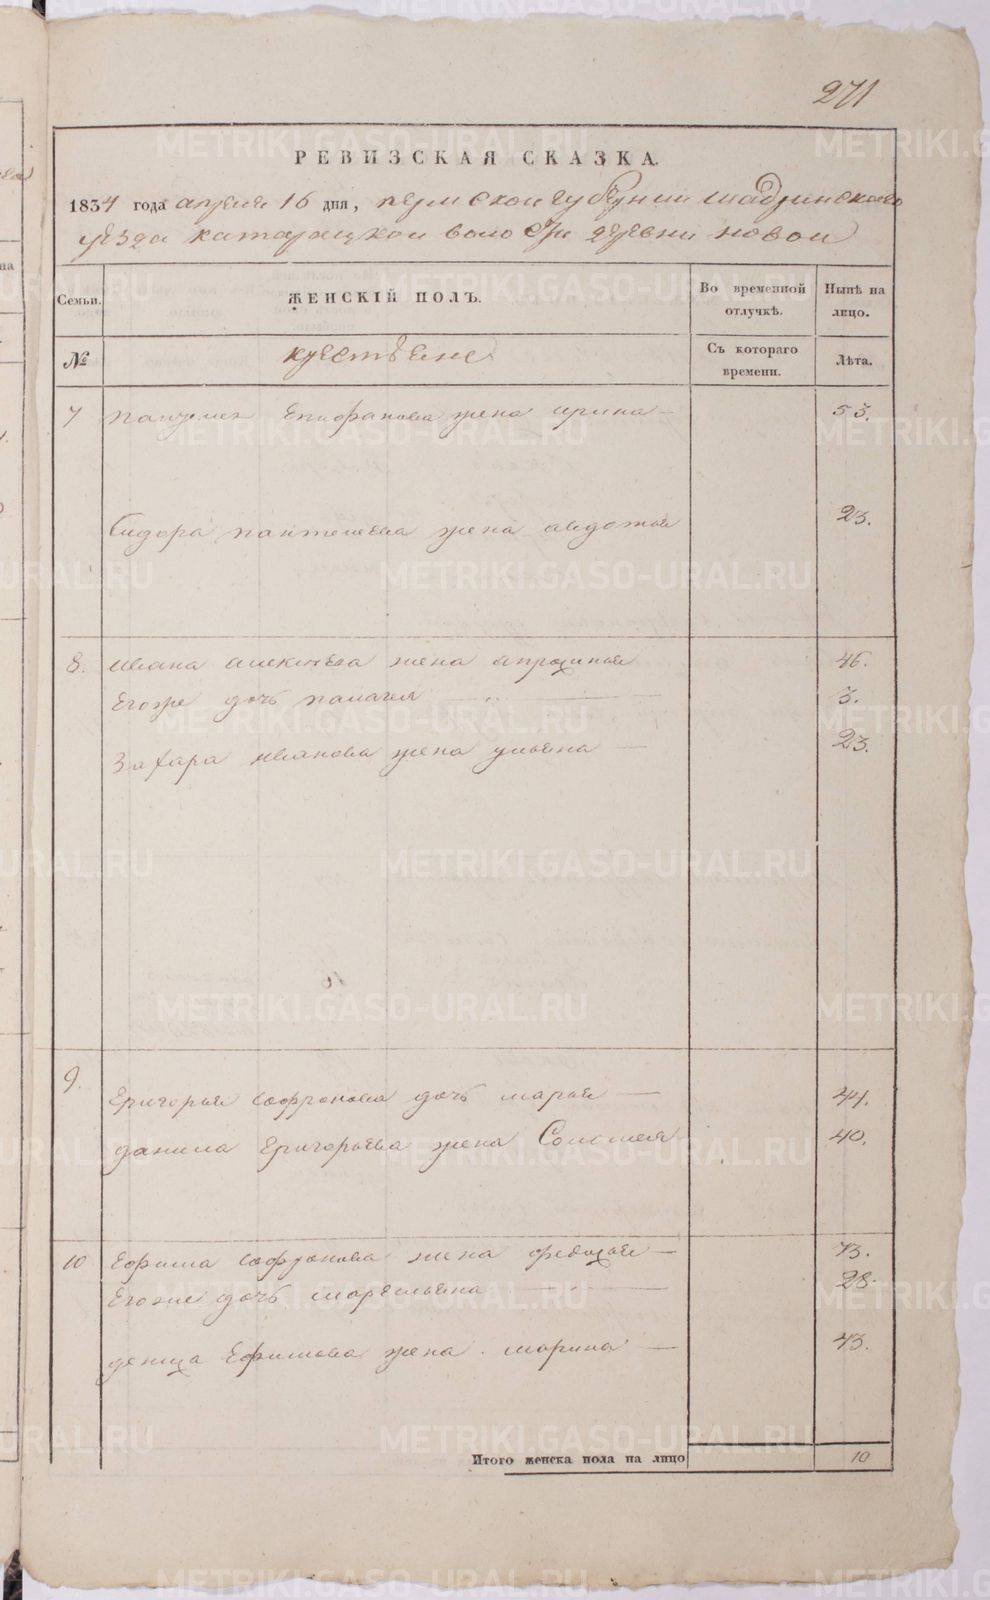 271
РЕВИЗСКАЯ СКАЗКА.
1834 года апреля 16 дня, пермской губернии шадринского
уезда катарацкой волости деревни новой
Семьи. ЖЕНСКІЙ ПОЛЪ. Во временной отлучкѣ. Нынѣ на лицо.
№ крестьяне Съ котораго времени. Лѣта.
7 Епифанова жена ирина 53.
Сидора пантелеева жена авдотья 23.
8. ивана алексеева жена 46.
Егоже дочь палагея 3.
Захара иванова жена ульяна 23.
9. Григорья софронова дочь марья 44.
данила Григорьева жена Соломея 40.
10 Ефима софронова жена федосья 73.
Егоже дочь 28.
Ефимова жена марина 43.
Итого женска пола на лицо 10
METRIKI.GASO-URAL.RU